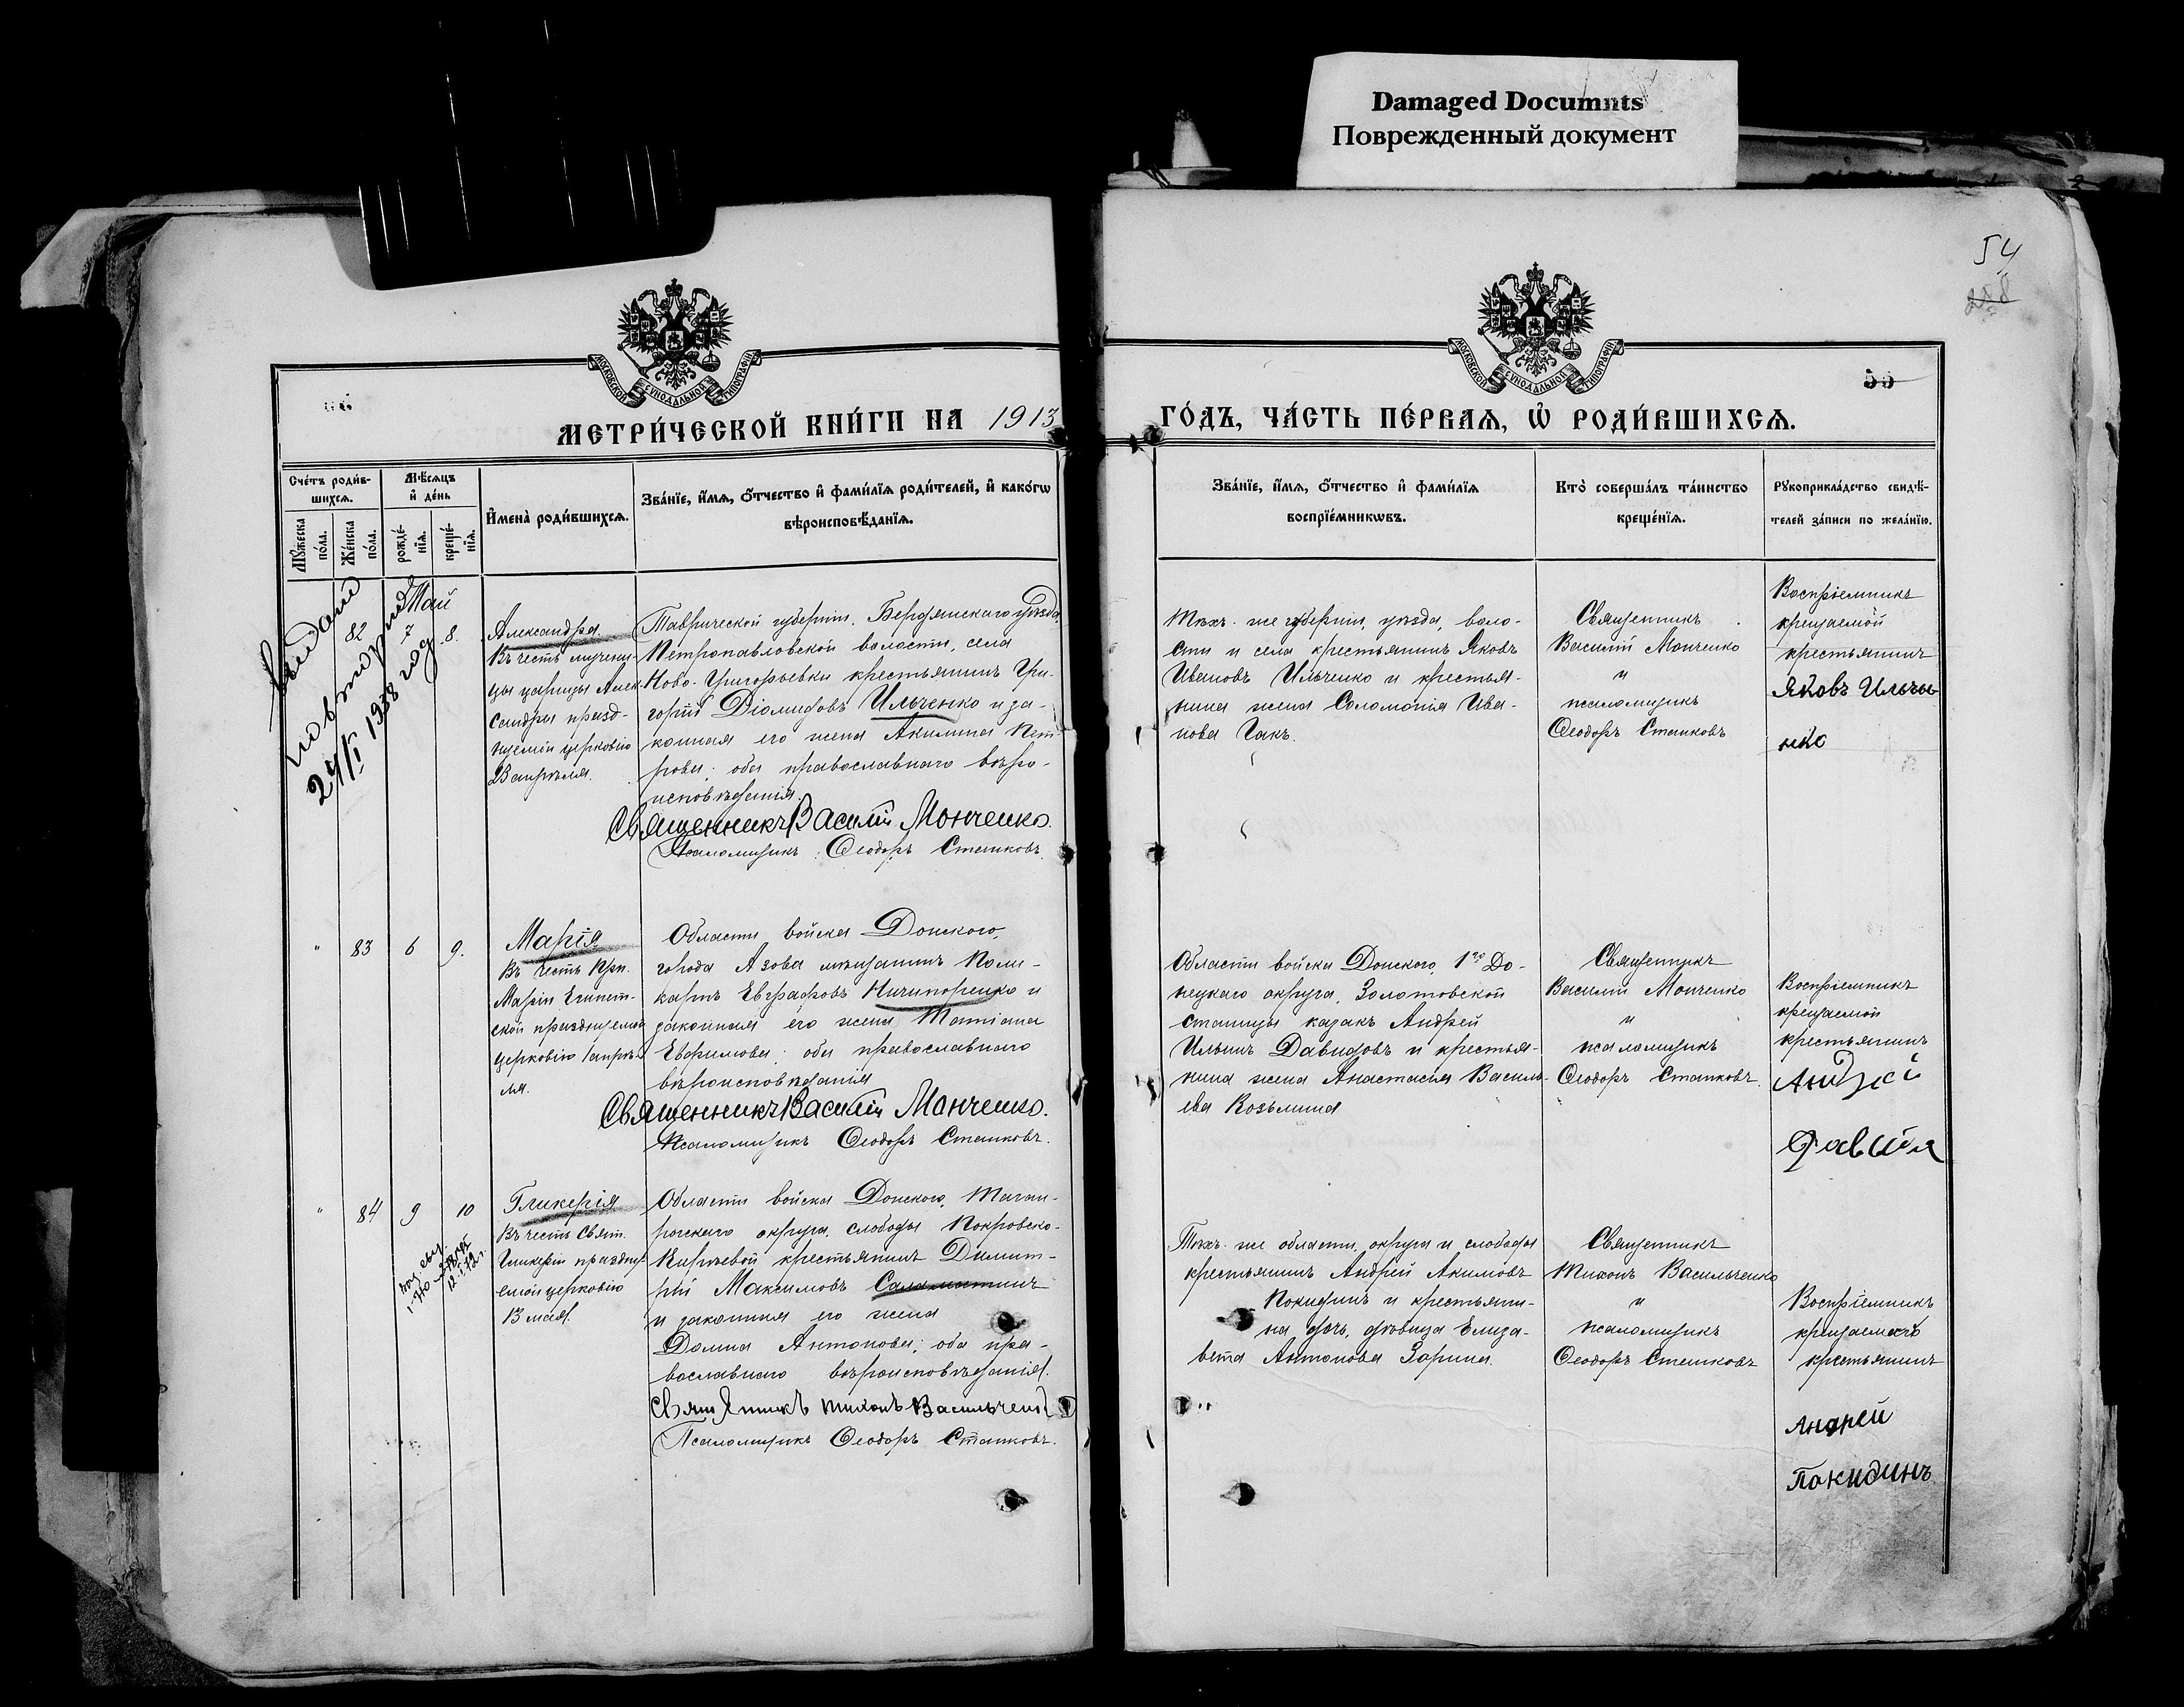 Damaged Documnts
Поврежденный документ
54
258
55
МОСКОВСКОЙ СѴНОДАЛЬНОЙ ТИПОГРАФІИ
МОСКОВСКОЙ СѴНОДАЛЬНОЙ ТИПОГРАФІИ
МЕТРИ́ЧЕСКОЙ КНИ́ГИ НА 1913
ГО́ДЪ, ЧА́СТЬ ПЕ́РВАѦ, Ѽ РОДИ́ВШИХСѦ.
Сче́тъ роди́в-
шихсѧ.
Мꙋ́жеска по́ла.
Же́нска по́ла.
Мѣ́сѧцъ
и҆ де́нь
рожде́-
нїѧ.
креще́-
нїѧ.
И҆мена̀ роди́вшихсѧ.
Зва́нїе, и҆́мѧ, ѻ҆́тчество и҆ фами́лїѧ роди́телей, и҆ како́гѡ
вѣроисповѣ́данїѧ.
Зва́нїе, и҆́мѧ, ѻ҆́тчество и҆ фами́лїѧ
воспрїе́мникѡвъ.
Кто̀ соверша́лъ та́инство
креще́нїѧ.
Рꙋкоприкла́дство свидѣ́-
телей за́писи по жела́нїю.
Май
82 7 8.
24/V 1938 год
Александра.
Въ честь мучени-
цы царицы Алек-
сандры празд-
нуемой церковію
23 апрѣля.
Таврической губерніи, Бердянскаго уѣзда,
Петропавловской волости, села
Ново-Григорьевки крестьянинъ Гри-
горій Діомидовъ Ильченко и за-
конная его жена Акилина Пет-
рова; оба православнаго вѣро-
исповѣданія.
Священникъ Василій Монченко.
Псаломщикъ Ѳеодоръ Сташковъ.
Тѣхъ-же губерніи, уѣзда, воло-
сти и села крестьянинъ Яковъ
Ивановъ Ильченко и крестьян-
нина жена Соломонія Ива-
нова Гакъ.
Священникъ
Василій Монченко
и
псаломщикъ
Ѳеодоръ Сташковъ
Воспріемникъ
крещаемой
крестьянинъ
Яковъ Ильче
нко
" 83 6 9.
Марія
Въ честь Прп.
Маріи Египет-
ской празднуемой
церковію 1 апрѣ-
ля.
Области войска Донского,
города Азова мѣщанинъ Поли-
карпъ Евграфовъ Ничипоренко и
законная его жена Татіана
Ефимова; оба православнаго
вѣроисповѣданія
Священникъ Василій Монченко.
Псаломщикъ Ѳеодоръ Сташковъ.
Области войска Донского, 1го До-
нецкаго округа, Золотовской
станицы казакъ Андрей
Ильинъ Давидовъ и крестья-
нина жена Анастасія Василь-
ева Козьмина
Священникъ
Василій Монченко
и
псаломщикъ
Ѳеодоръ Сташковъ.
Воспріемникъ
крещаемой
крестьянинъ
Андрей
" 84 9 10
Гликерія
Въ честь Свят.
Гликеріи праздну-
емой церковію
13 мая.
Области войска Донского, Таган-
рогскаго округа, слободы Покровско-
Кирѣевой крестьянинъ Димит-
рій Максимовъ
и законная его жена
Домна Антонова; оба пра-
вославнаго вѣроисповѣданія.
Священникъ Тихонъ Васильченко
Псаломщикъ Ѳеодоръ Сташковъ.
Тѣхъ-же области, округа и слободы
крестьянинъ Андрей Акимовъ
Покидинъ и крестьяни-
на дочь, дѣвица Елиза-
вета Антонова Зарина.
Священникъ
Тихонъ Васильченко
и
псаломщикъ
Ѳеодоръ Сташковъ
Воспріемникъ
крещаемаго
крестьянинъ
Андрей
Покидинъ